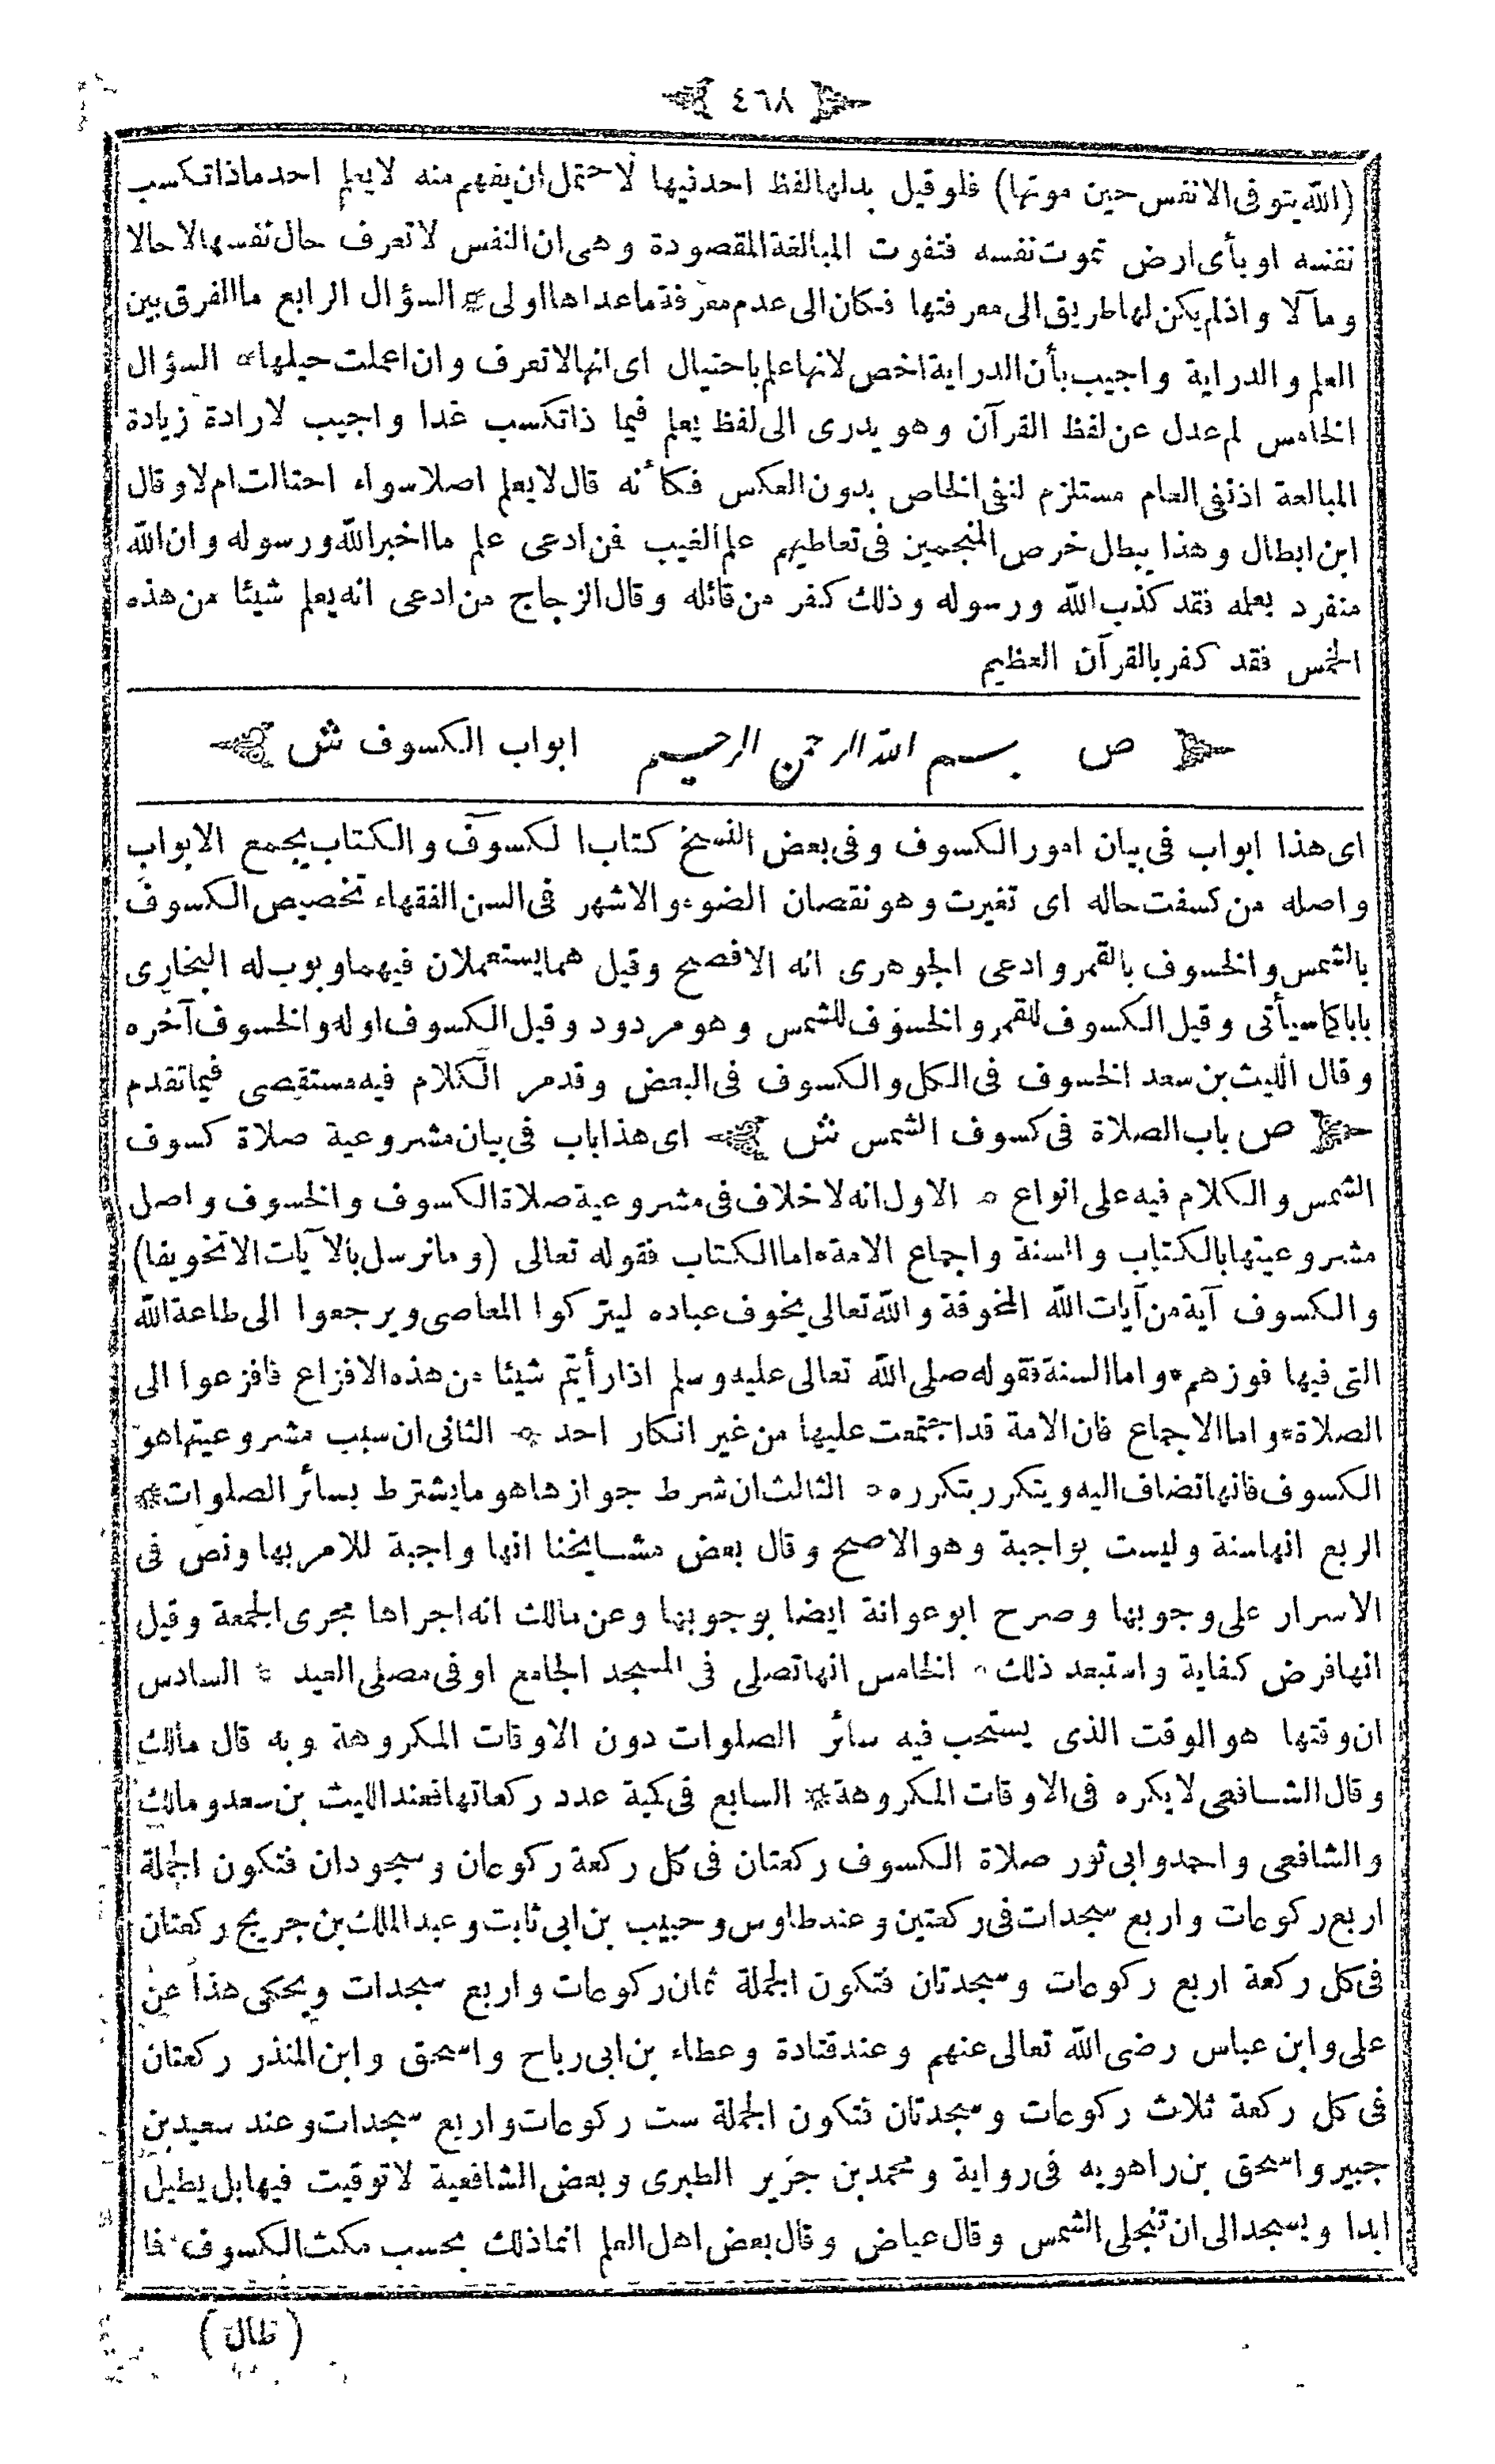 ٤٦٨
(الله يتوفى الانفس حين موتها) فلو قيل بدلها لفظ احد فيها لاحتمل ان يفهم منه لا يعلم احد ماذا تكسب
نفسه او بأى ارض تموت نفسه فتفوت المبالغة المقصودة وهى ان النفس لا تعرف حال نفسها لا حالا
ومآلا واذا لم يكن لها طريق الى معرفتها فكان الى عدم معرفة ما عداها اولى * السؤال الرابع ما الفرق بين
العلم والدراية واجيب بأن الدراية اخص لانها علم باحتيال اى انها لا تعرف وان اعملت حيلها * السؤال
الخامس لم عدل عن لفظ القرآن وهو يدرى الى لفظ يعلم فيما ذا تكسب غدا واجيب لارادة زيادة
المبالغة اذ نفى العام مستلزم لنفى الخاص بدون العكس فكأنه قال لا يعلم اصلا سواء احتالت ام لا وقال
ابن ابطال وهذا يبطل خرص المنجمين فى تعاطيهم علم الغيب فن ادعى علم ما اخبر الله ورسوله وان الله
منفرد بعلمه فقد كذب الله ورسوله وذلك كفر من قائله وقال الزجاج من ادعى انه يعلم شيئا من هذه
الخمس فقد كفر بالقرآن العظيم
ص بسم الله الرحمن الرحيم ابواب الكسوف ش
اى هذا ابواب فى بيان امور الكسوف وفى بعض النسخ كتاب الكسوف والكتاب يجمع الابواب
واصله من كسفت حاله اى تغيرت وهو نقصان الضوء والاشهر فى السن الفقهاء تخصيص الكسوف
بالشمس والخسوف بالقمر وادعى الجوهرى انه الافصح وقيل هما يستعملان فيهما وبوب له البخارى
بابا كما سيأتى وقيل الكسوف للقمر والخسوف للشمس وهو مردود وقيل الكسوف اوله والخسوف آخره
وقال الليث بن سعد الخسوف فى الكل والكسوف فى البعض وقد مر الكلام فيه مستقصى فيما تقدم
ص باب الصلاة فى كسوف الشمس ش اى هذا باب فى بيان مشروعية صلاة كسوف
الشمس والكلام فيه على انواع * الاول انه لا خلاف فى مشروعية صلاة الكسوف والخسوف واصل
مشروعيتها بالكتاب والسنة واجماع الامة * اما الكتاب فقوله تعالى (وما نرسل بالآيات الا تخويفا)
والكسوف آية من آيات الله المخوفة والله تعالى يخوف عباده ليتركوا المعاصى ويرجعوا الى طاعة الله
التى فيها فوزهم * واما السنة فقوله صلى الله تعالى عليه وسلم اذا رأيتم شيئا من هذه الافزاع فافزعوا الى
الصلاة * واما الاجماع فان الامة قد اجتمعت عليها من غير انكار احد * الثانى ان سبب مشروعيتها هو
الكسوف فانها تضاف اليه ويتكرر بتكرره * الثالث ان شرط جوازها هو ما يشترط بسائر الصلوات *
الربع انها سنة وليست بواجبة وهو الاصح وقال بعض مشايخنا انها واجبة للامر بها ونص فى
الاسرار على وجوبها وصرح ابو عوانة ايضا بوجوبها وعن مالك انه اجراها مجرى الجمعة وقيل
انها فرض كفاية واستبعد ذلك * الخامس انها تصلى فى المسجد الجامع او فى مصلى العيد * السادس
ان وقتها هو الوقت الذى يستحب فيه سائر الصلوات دون الاوقات المكروهة وبه قال مالك
وقال الشافعى لا يكره فى الاوقات المكروهة * السابع فى كمية عدد ركعاتها فعند الليث بن سعد ومالك
والشافعى واحمد وابى ثور صلاة الكسوف ركعتان فى كل ركعة ركوعان وسجودان فتكون الجملة
اربع ركوعات واربع سجدات فى ركعتين وعند طاوس وحبيب بن ابى ثابت وعبد الملك بن جريج ركعتان
فى كل ركعة اربع ركوعات وسجدتان فتكون الجملة ثمان ركوعات واربع سجدات ويحكى هذا عن
على وابن عباس رضى الله تعالى عنهم وعند قتادة وعطاء بن ابى رباح واسحق وابن المنذر ركعتان
فى كل ركعة ثلاث ركوعات وسجدتان فتكون الجملة ست ركوعات واربع سجدات وعند سعيد بن
جبير واسحق بن راهويه فى رواية ومحمد بن جرير الطبرى وبعض الشافعية لا توقيت فيها بل يطيل
ابدا ويسجد الى ان تنجلى الشمس وقال عياض وقال بعض اهل العلم انما ذلك بحسب مكث الكسوف فا
(طال)